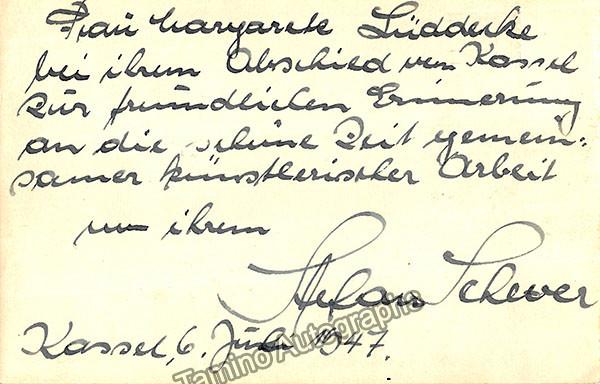 Frau Margarete Lüddecke
bei ihrem Abschied von Kassel
zur freundlichen Erinnerung
an die schöne Zeit gemein-
samer künstlerischer Arbeit
von ihrem
Stefan
Kassel, 6. Juli 1947.
Tamino Autographs